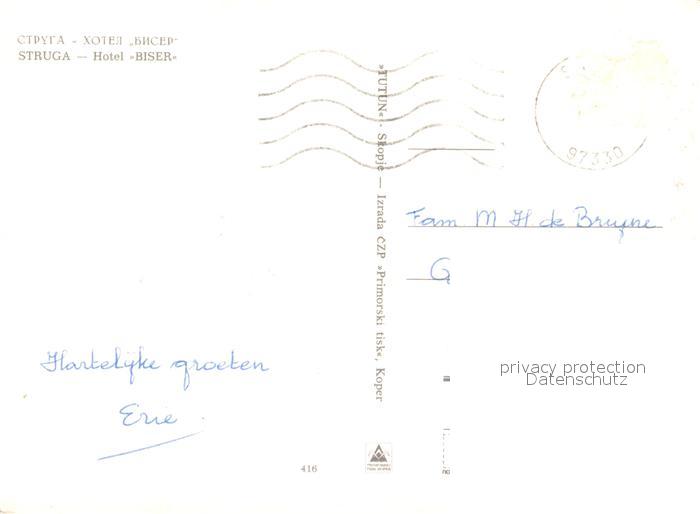 СТРУГА - ХОТЕЛ „БИСЕР"
STRUGA — Hotel »BISER«
»TUTUN« - Skopje — Izrada ČZP »Primorski tisk«, Koper
97330
Fam M H de Bruyne
G
Hartelijke groeten
Erie
privacy protection
Datenschutz
416